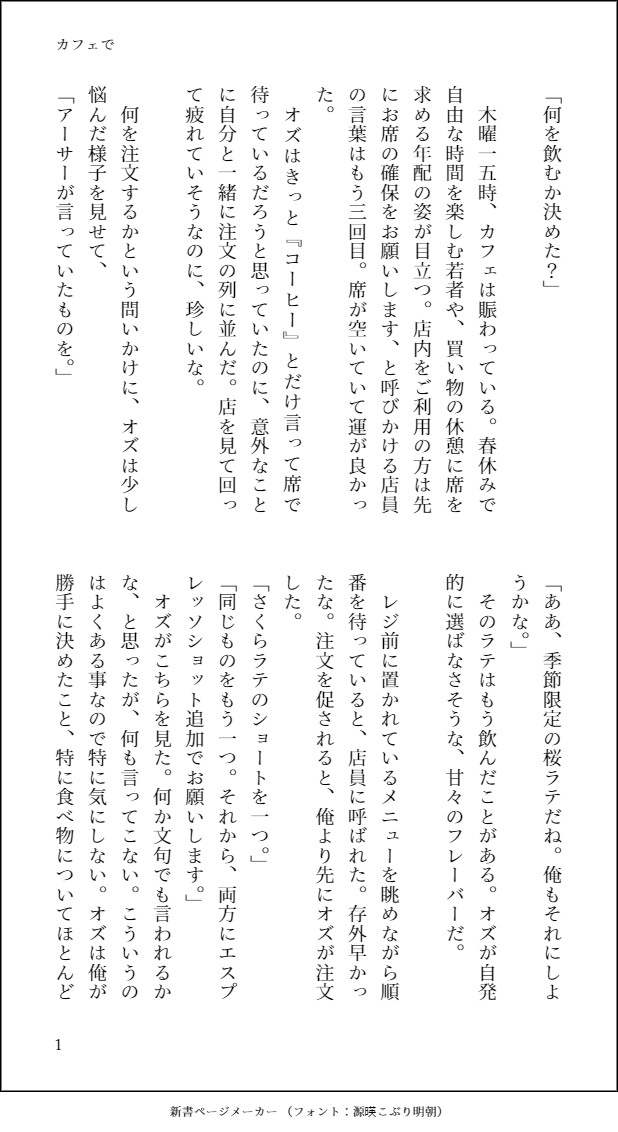 カフェで
「何を飲むか決めた？」
木曜一五時、カフェは賑わっている。春休みで
自由な時間を楽しむ若者や、買い物の休憩に席を
求める年配の姿が目立つ。店内をご利用の方は先
にお席の確保をお願いします、と呼びかける店員
の言葉はもう三回目。席が空いていて運が良かっ
た。
オズはきっと『コーヒー』とだけ言って席で
待っているだろうと思っていたのに、意外なこと
に自分と一緒に注文の列に並んだ。店を見て回っ
て疲れていそうなのに、珍しいな。
何を注文するかという問いかけに、オズは少し
悩んだ様子を見せて、
「アーサーが言っていたものを。」
「ああ、季節限定の桜ラテだね。俺もそれにしよ
うかな。」
そのラテはもう飲んだことがある。オズが自発
的に選ばなさそうな、甘々のフレーバーだ。
レジ前に置かれているメニューを眺めながら順
番を待っていると、店員に呼ばれた。存外早かっ
たな。注文を促されると、俺より先にオズが注文
した。
「さくらラテのショートを一つ。」
「同じものをもう一つ。それから、両方にエスプ
レッソショット追加でお願いします。」
オズがこちらを見た。何か文句でも言われるか
な、と思ったが、何も言ってこない。こういうの
はよくある事なので特に気にしない。オズは俺が
勝手に決めたこと、特に食べ物についてほとんど
1
新書ページメーカー（フォント：源暎こぶり明朝）